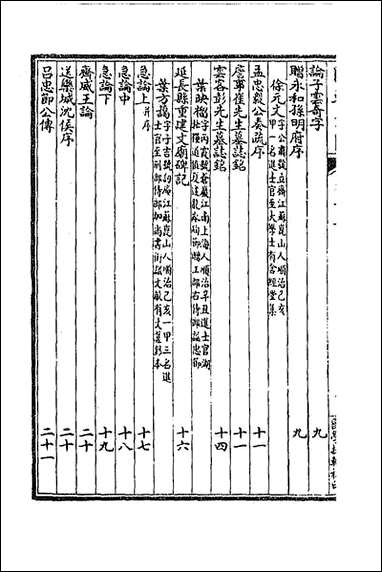 論子雲奇字 九
贈永和孫明府序 九
徐元文字公肅號立齋江蘇崑山人順治己亥一甲一名進士官至大學士有含經堂集
孟忠毅公奏疏序 十一
詹事崔先生墓誌銘 十一
雲客彭先生墓誌銘 十四
葉映榴字丙霞號蒼巖江南上海人順治辛丑進士官湖北糧道殉難贈工部右侍郎諡忠節
延長縣重建文廟碑記 十六
葉方藹字子吉號訒菴江蘇崑山人順治己亥一甲三名進士官至刑部侍郎加尚書銜諡文敏有文藁彭本
急論上并序 十七
急論中 十八
急論下 十九
齊威王論 二十
送欒城沈侯序 二十
呂忠節公傳 二十一